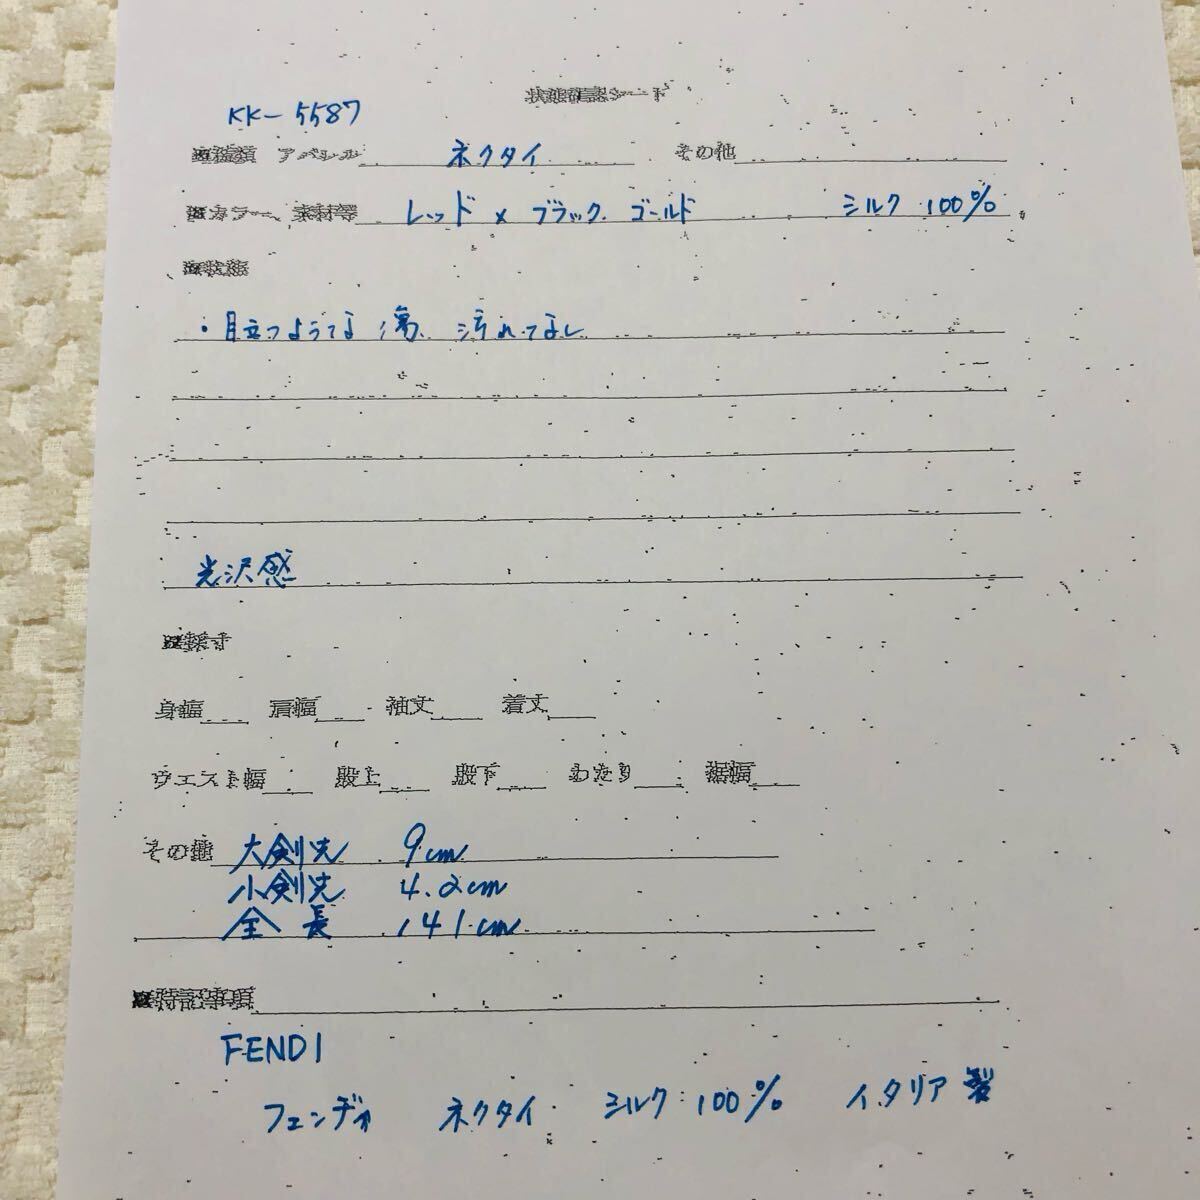 状態確認シート
KK-5587
■種類 アパレル ネクタイ その他
■カラー、素材等 レッド × ブラック. ゴールド シルク 100%
■状態
・目立つような 傷、汚れてなし
光沢感
■採寸
身幅 肩幅 袖丈 着丈
ウエスト幅 股上 股下 わたり 裾幅
その他 大剣先 9cm
小剣先 4.2cm
全長 141cm
■特記事項
FENDI
フェンディ ネクタイ シルク 100% イタリア製